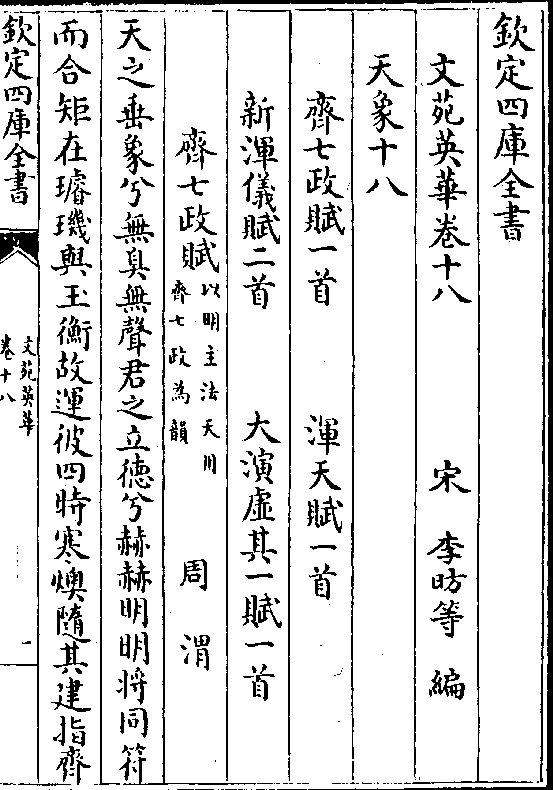 欽定四庫全書
文苑英華卷十八　宋　李昉等　編
天象十八
齊七政賦一首　渾天賦一首
新渾儀賦二首　大演虛其一賦一首
齊七政賦以明主法天用齊七政為韻　周渭
天之垂象兮無臭無聲君之立德兮赫赫明明將同符
而合矩在璿璣與玉衡故運彼四時寒燠隨其建指齊
欽定四庫全書
文苑英華
卷十八
一